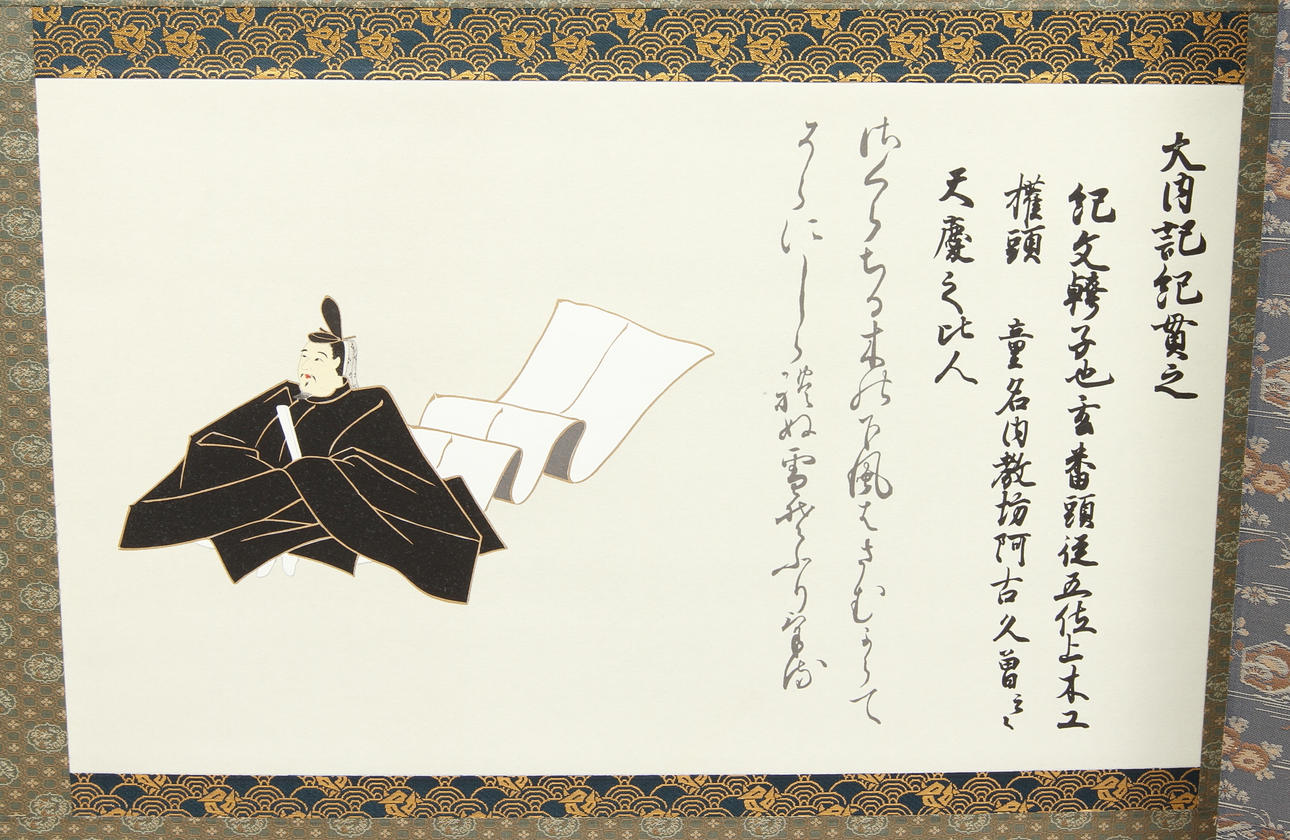 大内記紀貫之
紀文幹子也玄番頭従五位上木工
權頭　童名内教坊阿古久曽云々
天慶之比人
さくらちる木の下風はさむからて
そらにしられぬ雪そふりける